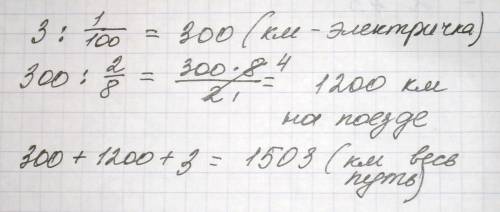 3 : 1/100 = 300 (км - электричка)
300 : 2/8 = 300 · 8 4 / 2 1 = 1200 км
на поезде
300 + 1200 + 3 = 1503 (км весь
путь)